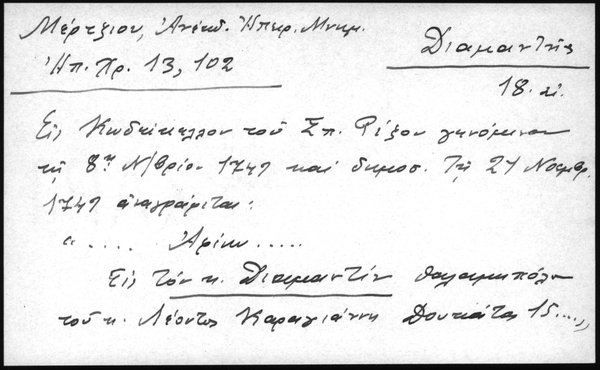 Μέρτζιου, Ἀνέκδ. Ἠπειρ. Μνημ.
Ἠπ. Χρ. 13, 102
Διαμαντής
18. αἰ.
Εἰς Κωδίκελλον τοῦ Σπ. Ρίζου γενόμενον
τῇ 8ῃ Ν/βρίου 1749 καὶ δημοσ. τῇ 21 Νοεμβρ.
1749 ἀναγράφεται:
"..... Ἀφίνω.....
Εἰς τόν κ. Διαμαντήν θαλαμηπόλον
τοῦ κ. Λέοντος Καραγιάννη Δουκάτα 15....,,